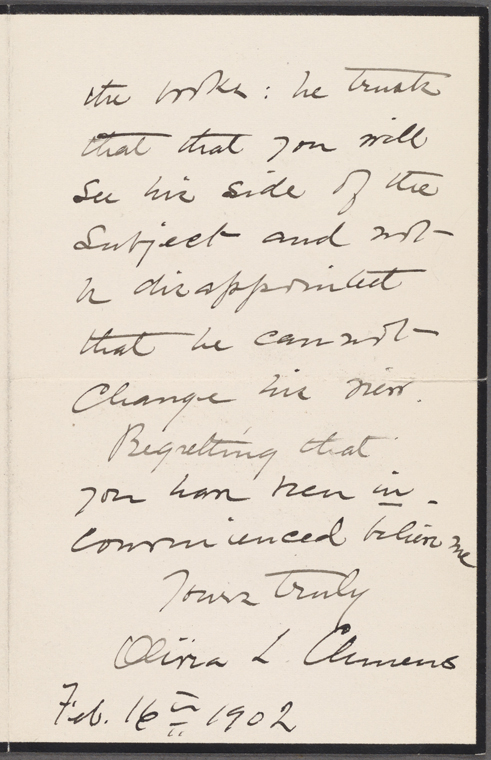 the books: he trusts
that that you will
see his side of the
subject and not
be disappointed
that he cannot
change his view.
Regretting that
you have been in-
convenienced believe me
Yours truly
Olivia L. Clemens
Feb. 16th 1902